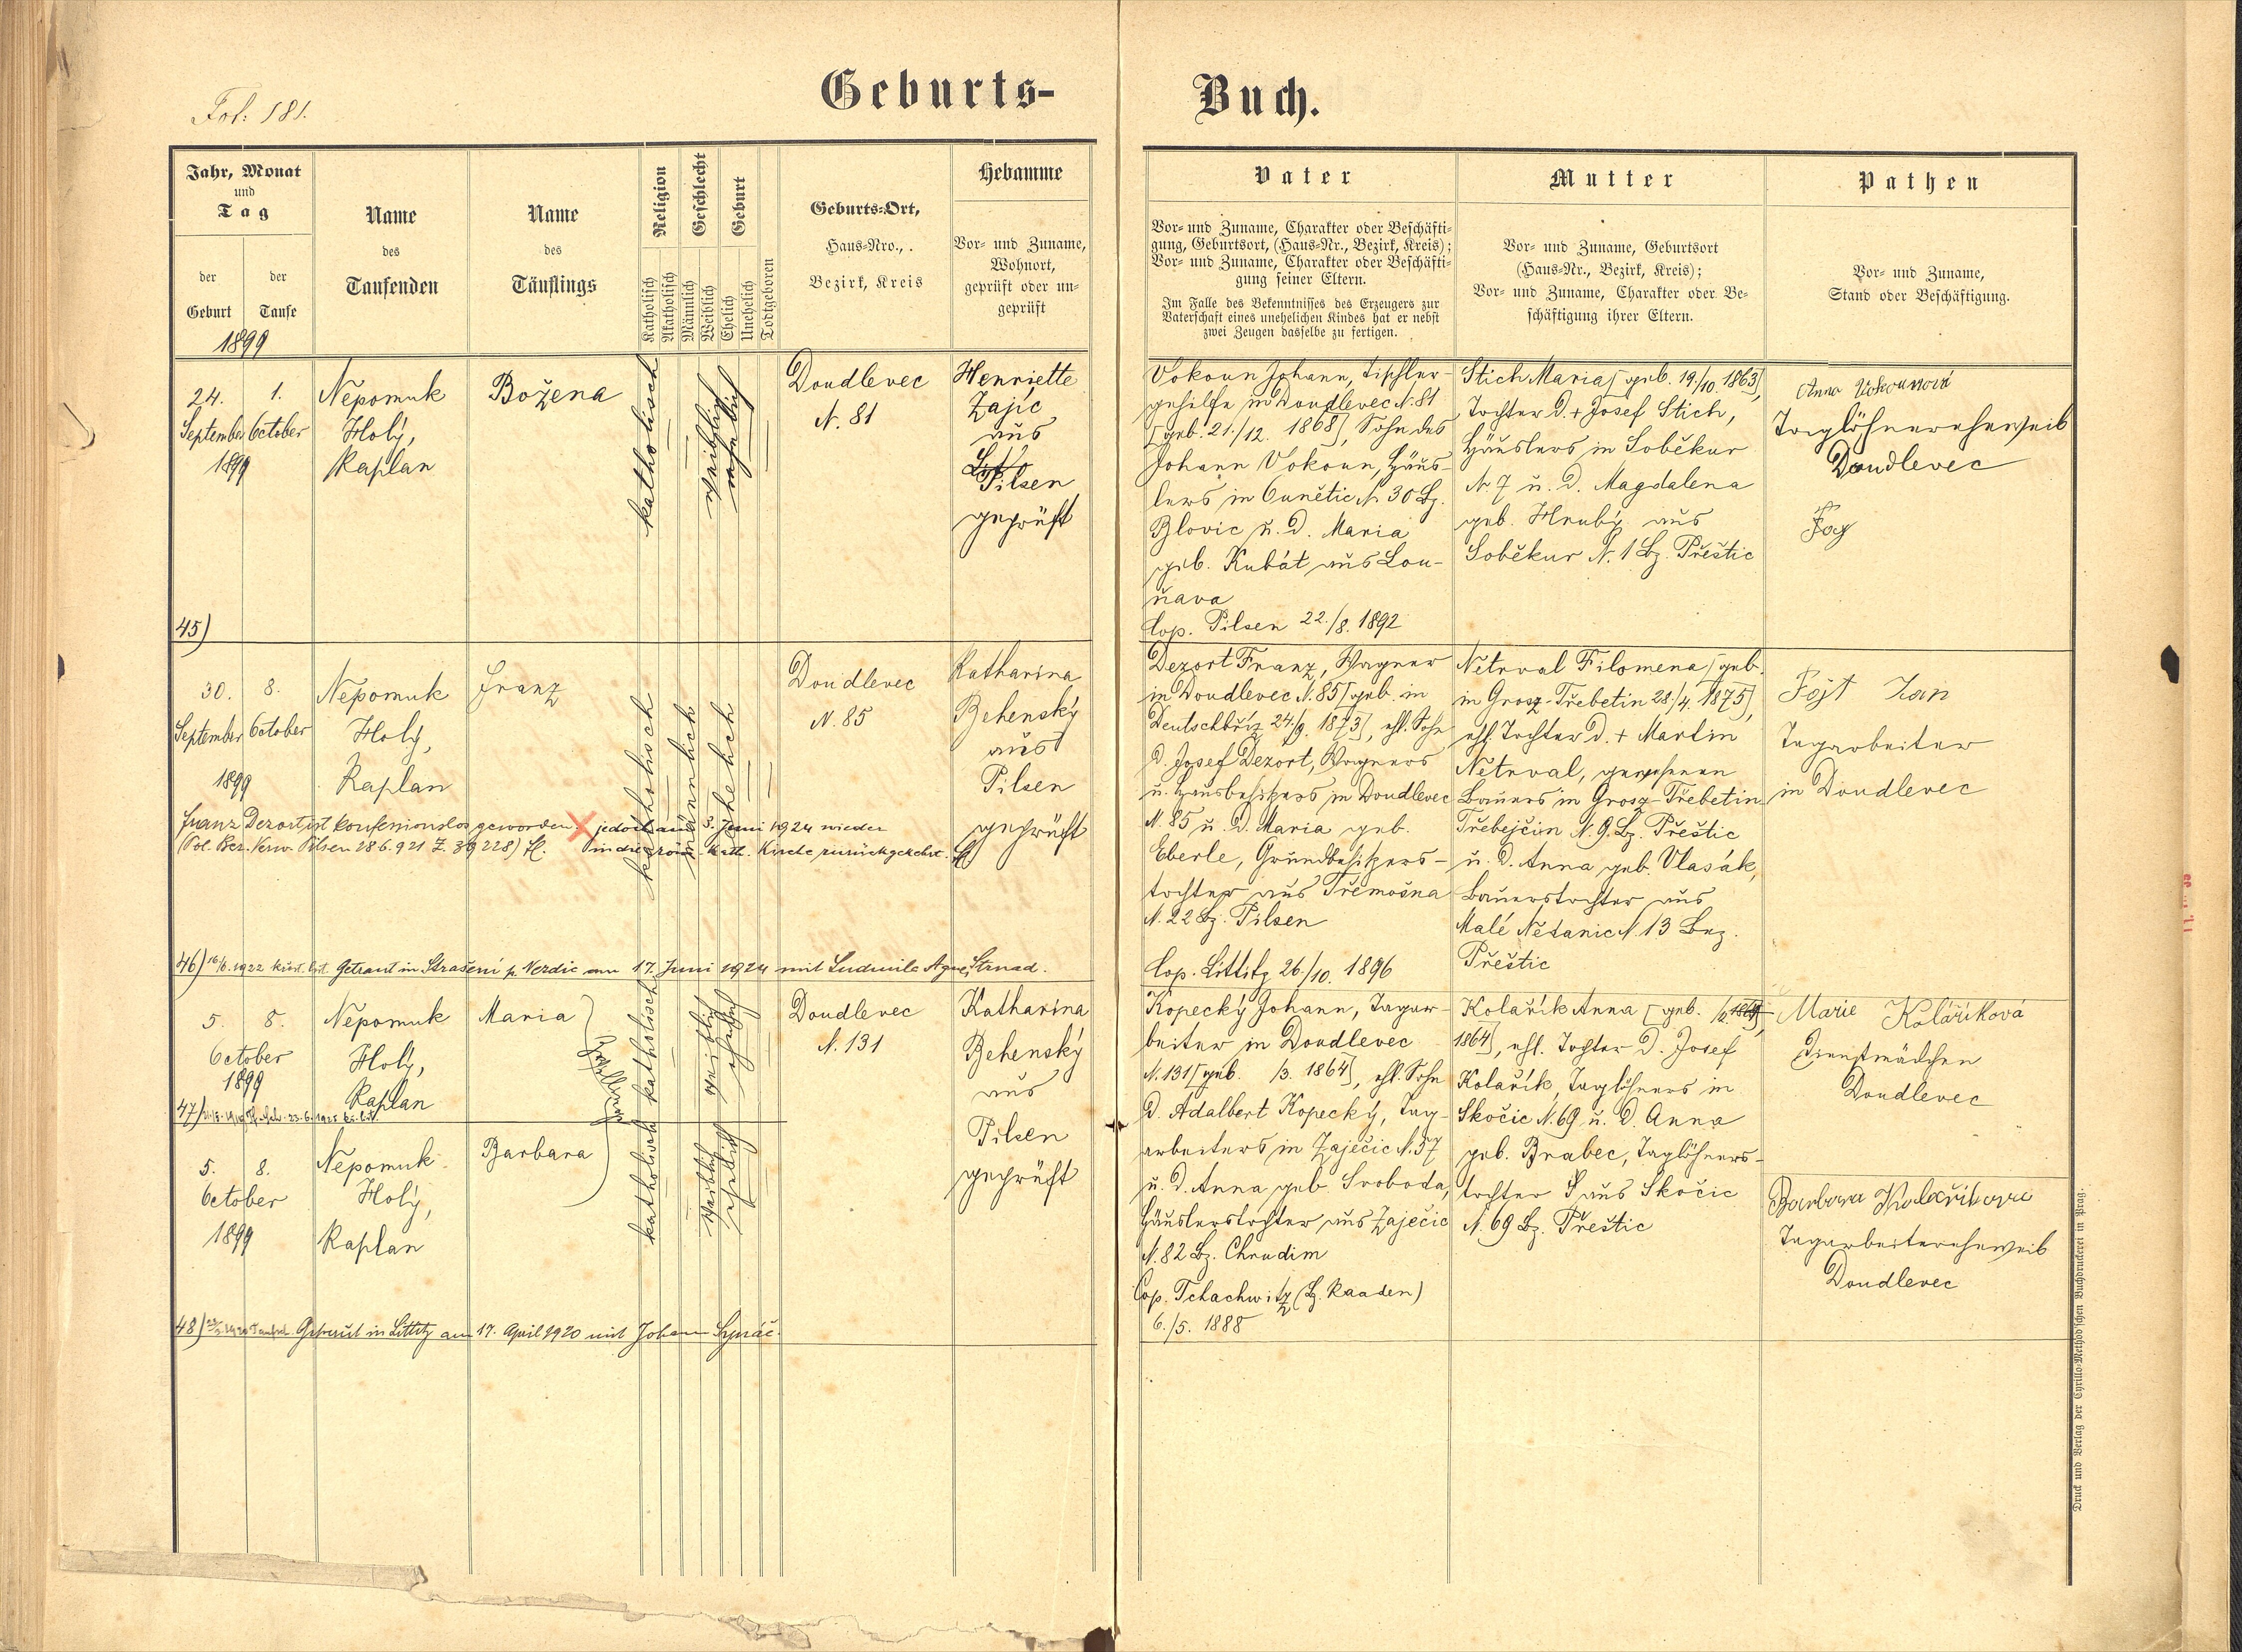 Fol: 181.
Geburts-
Buch.
Jahr, Monat
und
Tag
der
Geburt
der
Taufe
1899
Name
des
Taufenden
Name
des
Täuflings
Religion
Katholisch
Akatholisch
Geschlecht
Männlich
Weiblich
Geburt
Ehelich
Unehelich
Todtgeboren
Geburts-Ort,
Haus-Nro.,
Bezirk, Kreis
Hebamme
Vor- und Zuname,
Wohnort,
geprüft oder un-
geprüft
Vater
Vor- und Zuname, Charakter oder Beschäfti-
gung, Geburtsort, (Haus-Nr., Bezirk, Kreis);
Vor- und Zuname, Charakter oder Beschäfti-
gung seiner Eltern.
Im Falle des Bekenntnisses des Erzeugers zur
Vaterschaft eines unehelichen Kindes hat er nebst
zwei Zeugen dasselbe zu fertigen.
Mutter
Vor- und Zuname, Geburtsort
(Haus-Nr., Bezirk, Kreis);
Vor- und Zuname, Charakter oder Be-
schäftigung ihrer Eltern.
Pathen
Vor- und Zuname,
Stand oder Beschäftigung.
24.
September
1899
1.
October
Nepomuk
Holý,
Kaplan
Božena
katholisch
weiblich
ehelich
Doudlevec
N. 81
Henriette
Zajíc
aus
Pilsen
geprüft
Vokoun Johann, Tischler-
gehilfe in Doudlevec N. 81
[geb. 21./12. 1868], Sohn des
Johann Vokoun, Häus-
lers in Cunětic N. 30 Bz.
Blovic u. d. Maria
geb. Kubát aus Lou-
ňava
Cop. Pilsen 22./8. 1892
Stich Maria [geb. 19./10. 1863],
Tochter d. + Josef Stich,
Häuslers in Soběkur
N. 7 u. d. Magdalena
geb. Hrubý aus
Soběkur N. 1 Bz. Přeštic
Anna Vokounová
Taglöhnereheweib
Doudlevec
45)
30.
September
1899
8.
October
Nepomuk
Holý,
Kaplan
Franz
katholisch
männlich
ehelich
Doudlevec
N. 85
Katharina
Behenský
aus
Pilsen
geprüft
Franz Dezort ist konfessionslos geworden. X jedoch am 3. Juni 1924 wieder
(Pol. Bez. Verw. Pilsen 28.6.921 Z. 39228) H. in die röm. kath. Kirche zurückgekehrt.
Dezort Franz, Wagner
in Doudlevec N. 85 [geb. in
Deutschbříz 24./9. 1873], ehl. Sohn
d. Josef Dezort, Wagners
u. Hausbesitzers in Doudlevec
N. 85 u. d. Maria geb.
Eberle, Grundbesitzers-
tochter aus Třemošna
N. 22 Bz. Pilsen
Cop. Littitz 26./10. 1896
Netrval Filomena [geb.
in Grosz-Třebetin 28./4. 1875],
ehl. Tochter d. + Martin
Netrval, gewesenen
Bauers in Grosz-Třebetin
Třebejčin N. 9. Bz. Přeštic
u. d. Anna geb. Vlasák,
Bauerstochter aus
Malé Nětanic N. 13 Bez.
Přeštic
Fojt Jan
Tagarbeiter
in Doudlevec
46) 16/6. 1922 křest. list. Getraut in Strašení p. Nerdic am 17. Juni 1924 mit Ludmila Agnes Strnad.
5.
October
1899
8.
Nepomuk
Holý,
Kaplan
Maria
Zwillinge
katholisch
weiblich
ehelich
Doudlevec
N. 131
Katharina
Behenský
aus
Pilsen
geprüft
47)
Kopecký Johann, Tagar-
beiter in Doudlevec
N. 131 [geb. /3. 1864], ehl. Sohn
d. Adalbert Kopecký, Tag-
arbeiters in Zaječic N. 57
u. d. Anna geb. Svoboda,
Häuslerstochter aus Zaječic
N. 82 Bz. Chrudim
Cop. Tchachwitz (Bz. Kaaden)
6./5. 1888
Kolařík Anna [geb.
1864], ehl. Tochter d. Josef
Kolařík, Taglöhners in
Skočic N. 69 u. d. Anna
geb. Brabec, Taglöhners-
tochter aus Skočic
N. 69 Bz. Přeštic
Marie Kolaříková
Dienstmädchen
Doudlevec
5.
October
1899
8.
Nepomuk
Holý,
Kaplan
Barbara
katholisch
weiblich
ehelich
Barbora Kolaříkova
Tagarbeitereheweib
Doudlevec
48) Getraut in Littitz am 17. April 1920 mit Johann
Druck und Verlag der Cyrillo-Method'schen Buchdruckerei in Prag.